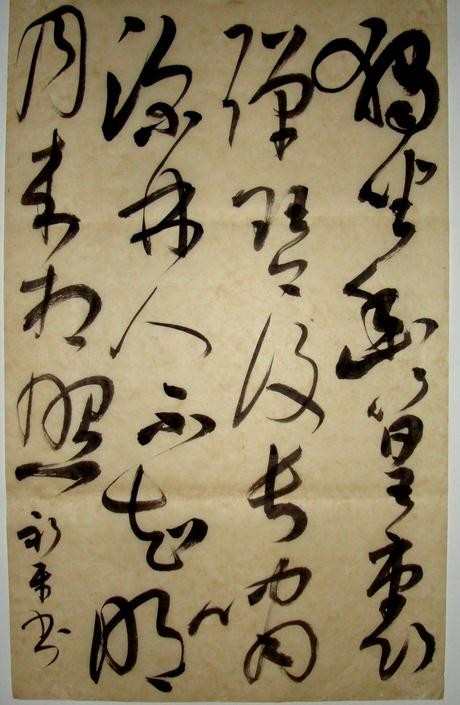 獨坐幽篁裏
彈琴復長嘯
深林人不知明
月来相照
书